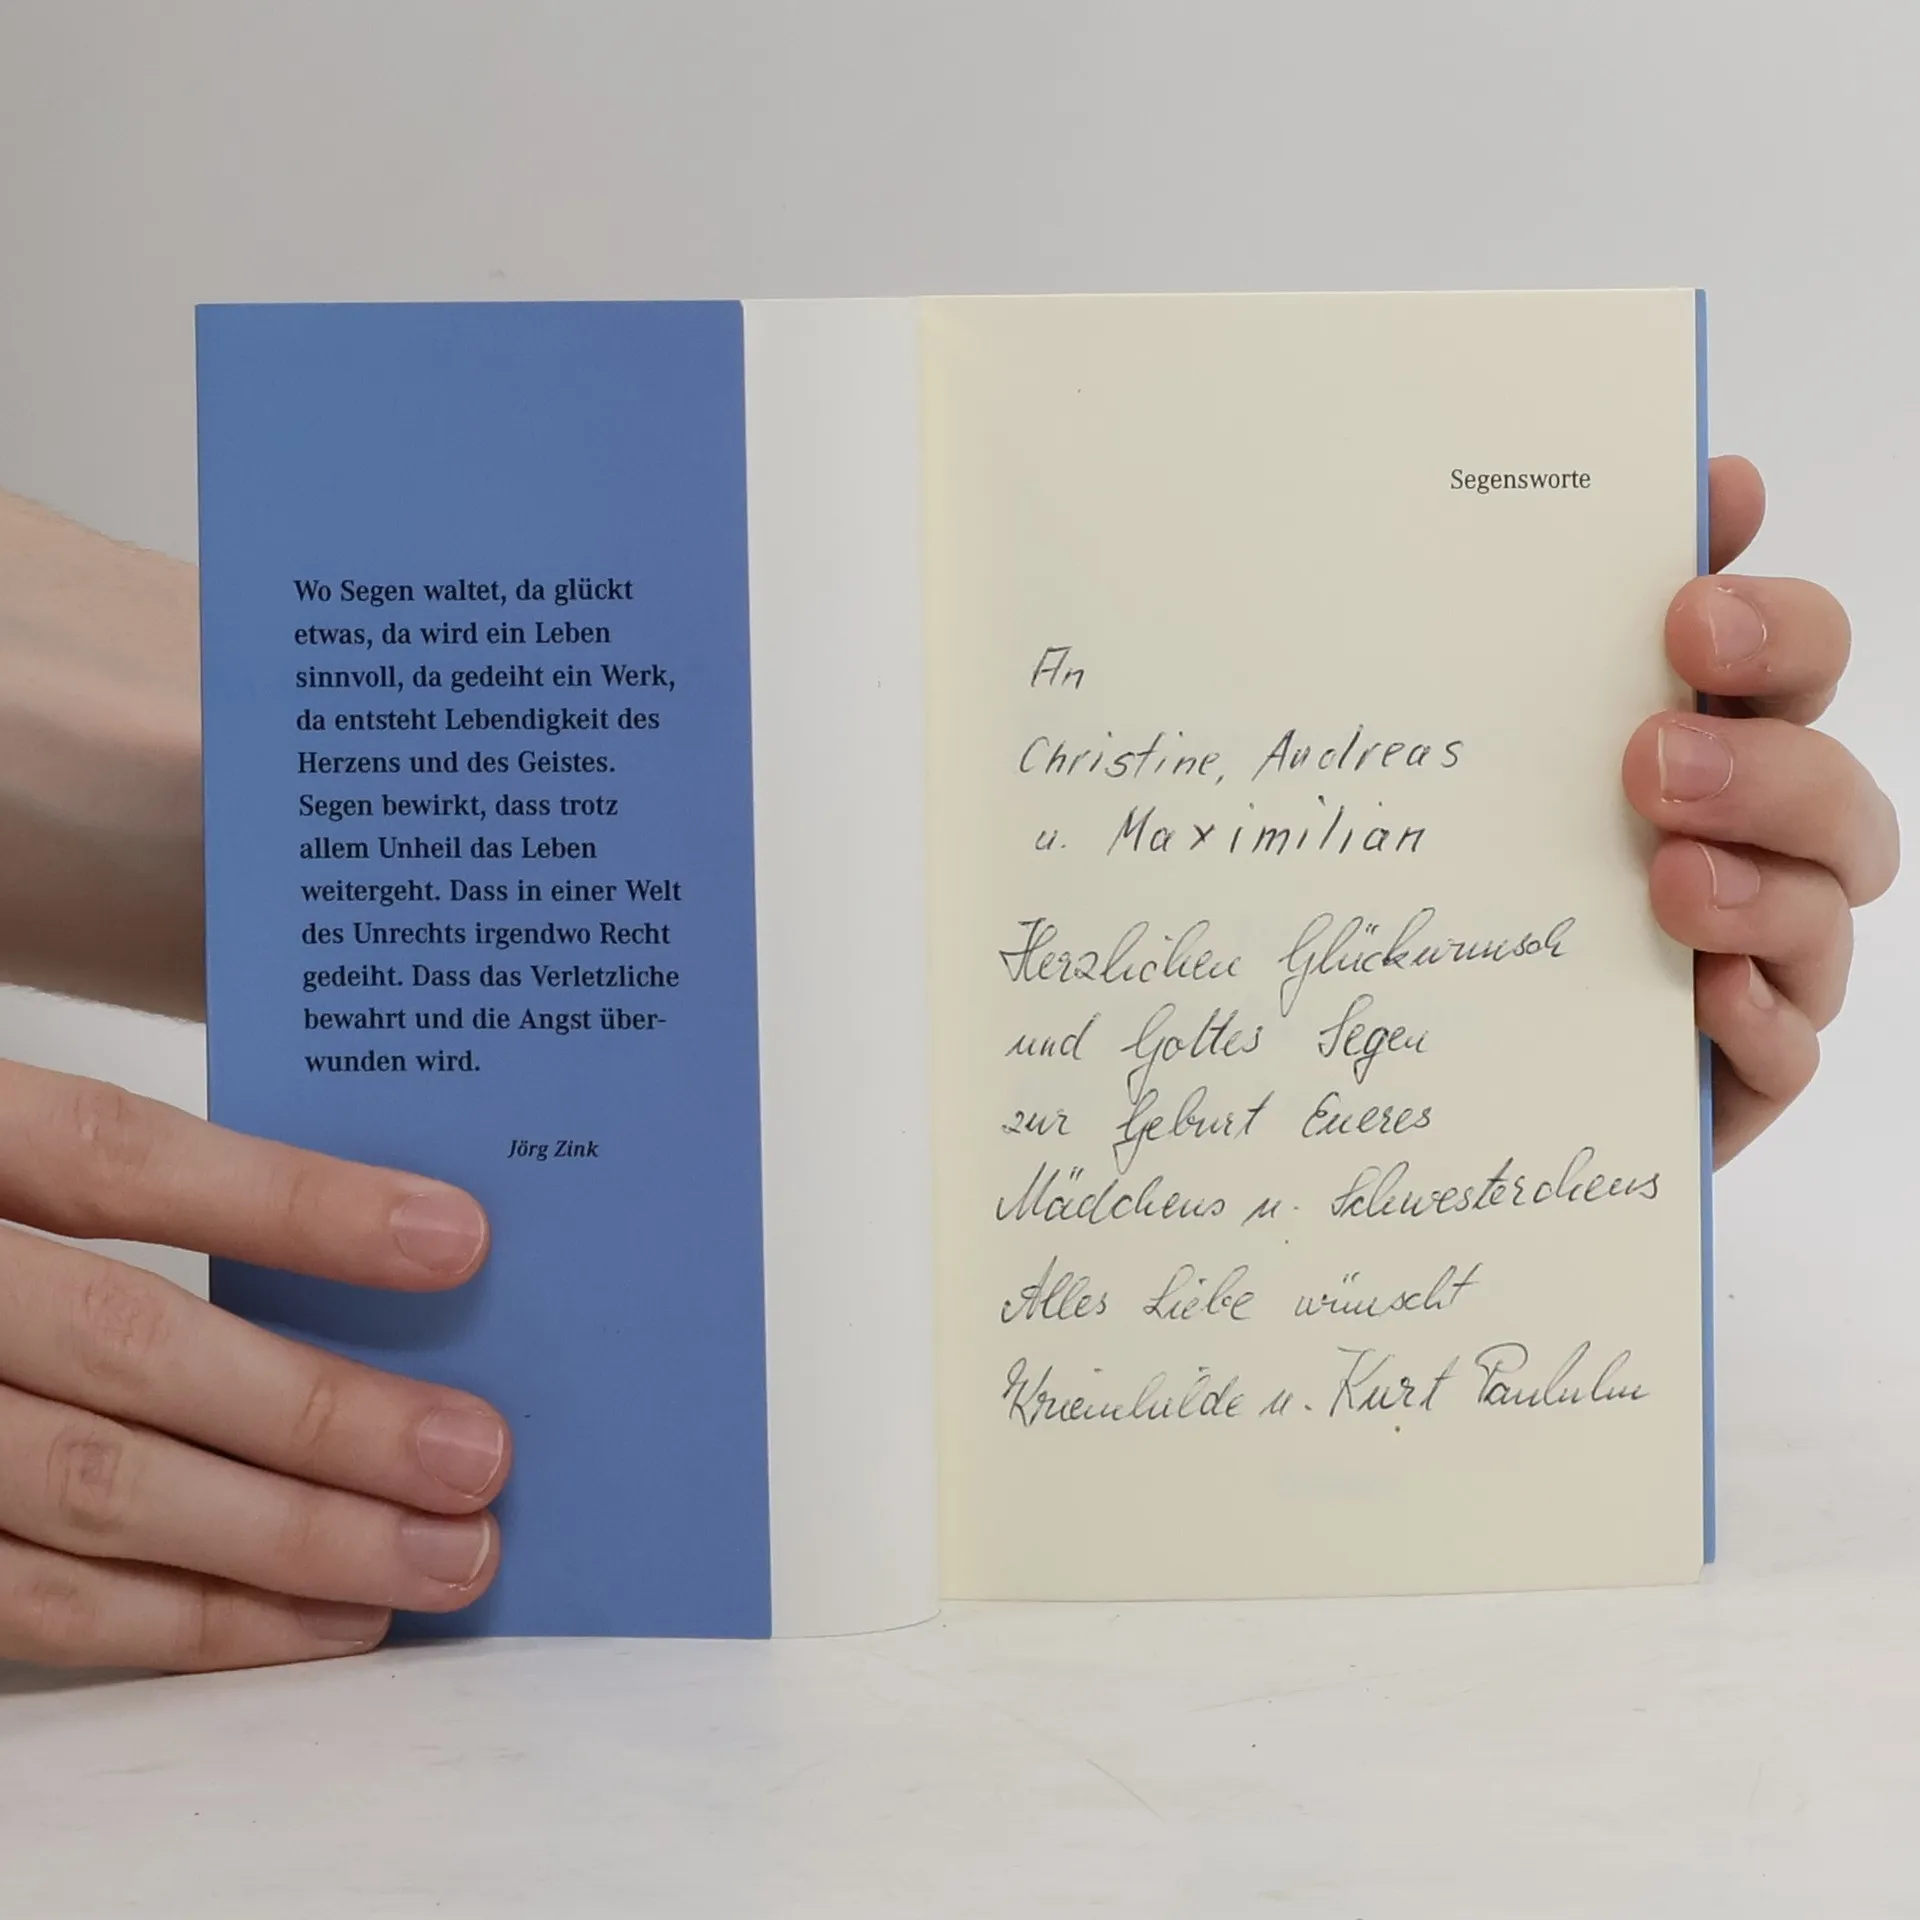 Wo Segen waltet, da glückt
etwas, da wird ein Leben
sinnvoll, da gedeiht ein Werk,
da entsteht Lebendigkeit des
Herzens und des Geistes.
Segen bewirkt, dass trotz
allem Unheil das Leben
weitergeht. Dass in einer Welt
des Unrechts irgendwo Recht
gedeiht. Dass das Verletzliche
bewahrt und die Angst über-
wunden wird.
Jörg Zink
Segensworte
An
Christine, Andreas
u. Maximilian
Herzlichen Glückwunsch
und Gottes Segen
zur Geburt Eueres
Mädchens u. Schwesterchens
Alles Liebe wünscht
Kriemhilde u. Kurt